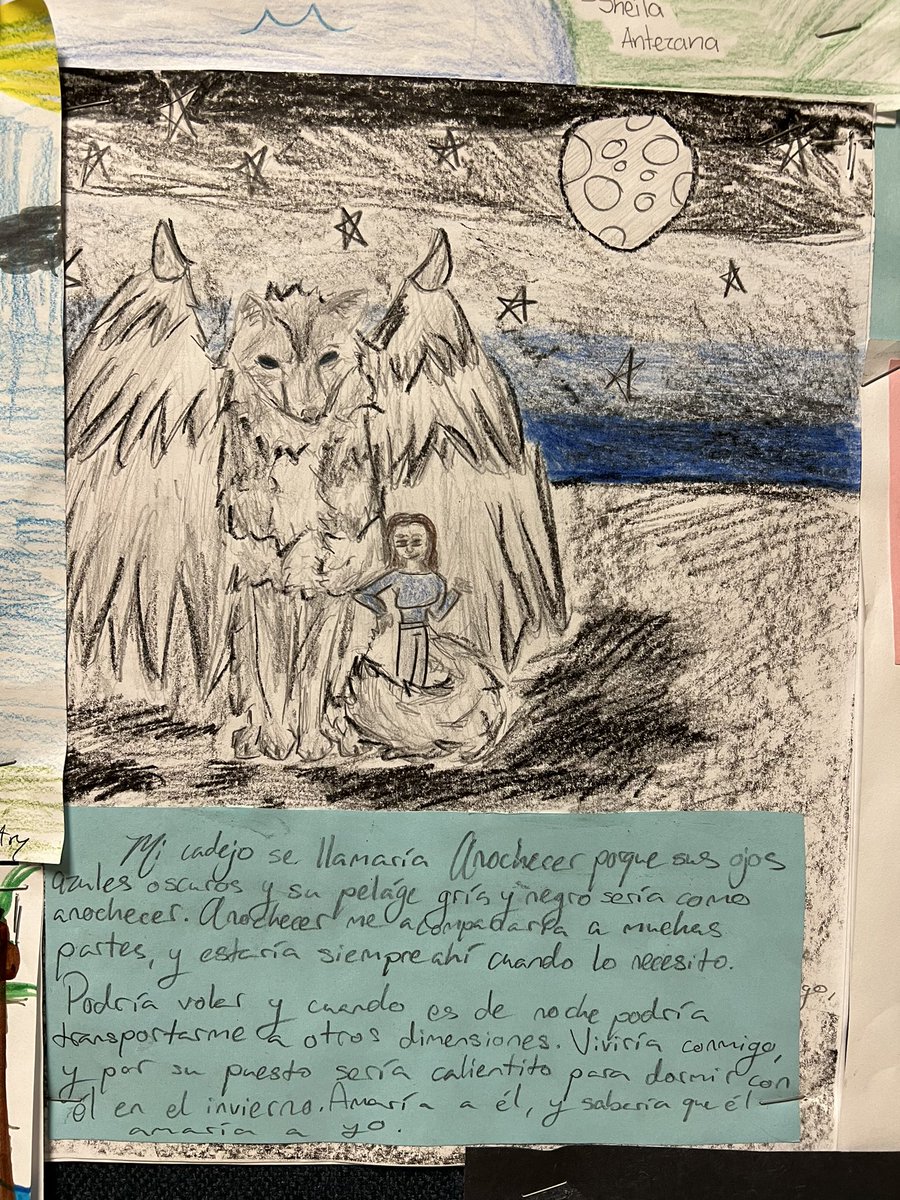 Sheila
Anterana
Mi cadejo se llamaría Anochecer porque sus ojos
azules oscuros y su peláge gría y negro sería como
anochecer. Anochecer me acompadaría a muchas
partes, y estaría siempre ahí cuando lo necesito.
Podría voler y cuando es de noche podría
transportarme a otros dimensiones. Viviría conmigo,
y por su puesto sería calientito para dormir con
él en el invierno. Amaría a él, y sabería que él
amaría a yo.
go,